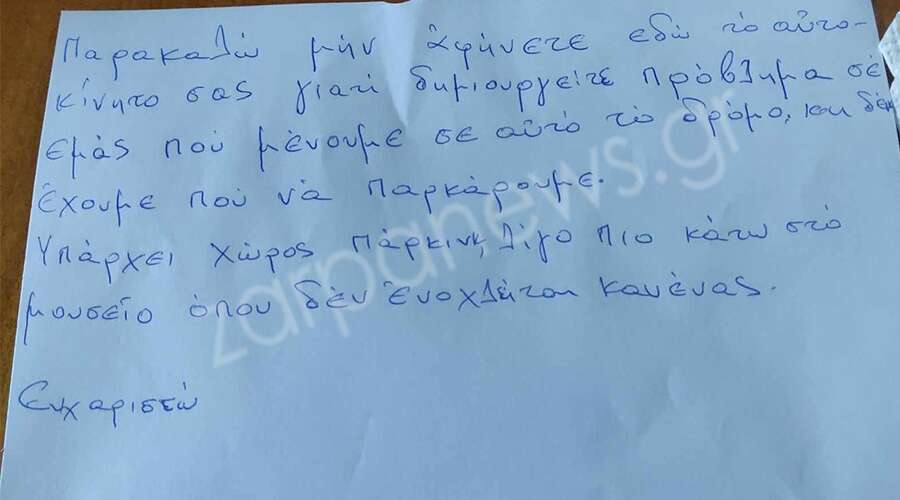 Παρακαλώ μήν ἀφήνετε εδώ τὸ αὐτο-
κίνητο σας γιατί δημιουργείτε πρόβλημα σὲ
εμάς πού μένουμε σε αὐτό τὸ δρόμο, και δὲν
ἔχουμε πού νὰ παρκάρουμε.
Υπάρχει χώρος πάρκινκ, λίγο πιο κάτω στὸ
μουσεῖο ὅπου δὲν ἐνοχλεῖται κανένας.
Ευχαριστώ
zarpanews.gr